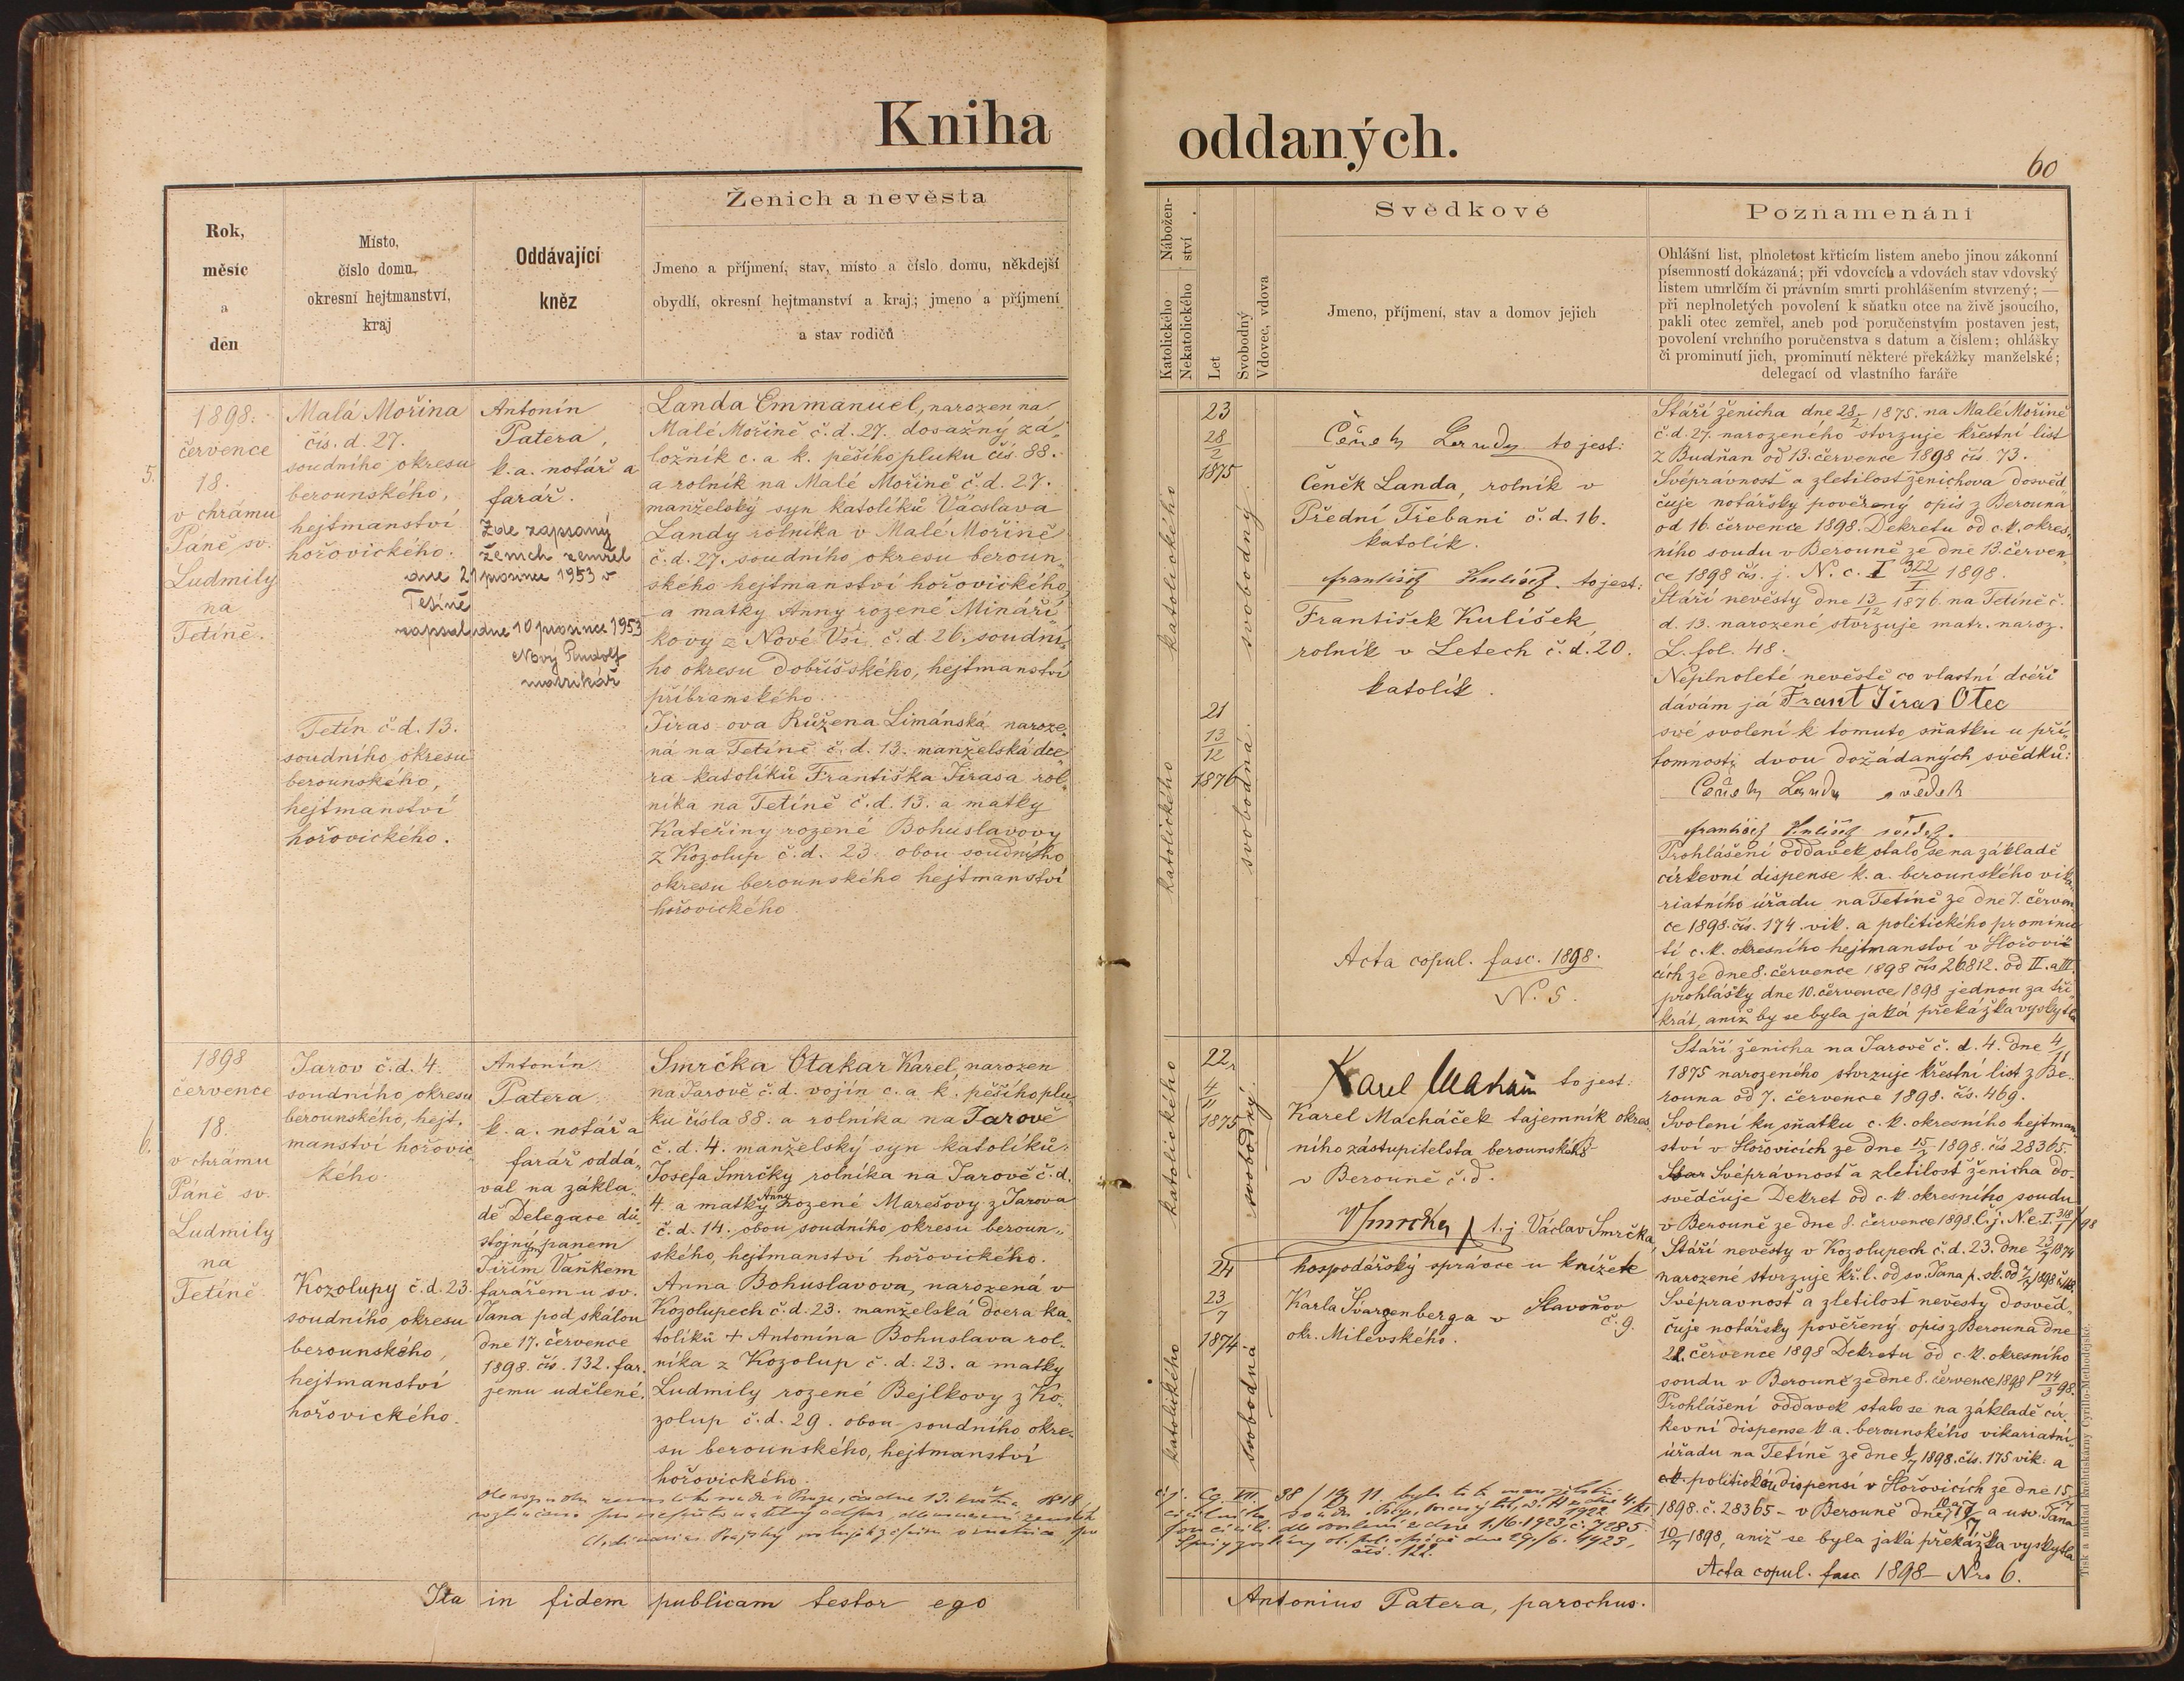 Kniha
oddaných.
60
Rok,
měsíc
a
den
Místo,
číslo domu,
okresní hejtmanství,
kraj
Oddávající
kněz
Ženich a nevěsta
Jmeno a příjmení, stav, místo a číslo domu, někdejší
obydlí, okresní hejtmanství a kraj; jmeno a příjmení
a stav rodičů
Nábožen-
ství
Katolického
Nekatolického
Let
Svobodný
Vdovec, vdova
Svědkové
Jmeno, příjmení, stav a domov jejich
Poznamenání
Ohlášní list, plnoletost křticím listem anebo jinou zákonní
písemností dokázaná; při vdovcích a vdovách stav vdovský
listem umrlčím či právním smrti prohlášením stvrzený; —
při neplnoletých povolení k sňatku otce na živě jsoucího,
pakli otec zemřel, aneb pod poručenstvím postaven jest,
povolení vrchního poručenstva s datum a číslem; ohlášky
či prominutí jich, prominutí některé překážky manželské;
delegací od vlastního faráře
5.
1898.
července
18.
v chrámu
Páně sv.
Ludmily
na
Tetíně.
Malá Mořina
čís. d. 27.
soudního okresu
berounského,
hejtmanství
hořovického.
Antonín
Patera,
k. a. notář a
farář.
Zde zapsaný
ženich zemřel
dne 21 prosince 1953 v
Tetíně
zapsal dne 10 prosince 1953
Nový Rudolf
matrikář
Landa Emmanuel, narozen na
Malé Mořině č. d. 27. dosažný zá-
ložník c. a k. pěšího pluku čís. 88.
a rolník na Malé Mořině č. d. 27.
manželský syn katolíků Vácslava
Landy rolníka v Malé Mořině
č. d. 27. soudního okresu beroun-
ského hejtmanství hořovického
a matky Anny rozené Mináří-
kovy z Nové Vsi č. d. 26, soudní-
ho okresu dobříšského, hejtmanství
příbramského.
Tetín č. d. 13.
soudního okresu
berounského,
hejtmanství
hořovického.
Jiras-ova Růžena Limánská naroze-
ná na Tetíně č. d. 13. manželská dce-
ra katolíků Františka Jirasa rol-
níka na Tetíně č. d. 13. a matky
Kateřiny rozené Bohuslavovy
z Kozolup č. d. 23. obou soudního
okresu berounského hejtmanství
hořovického.
katolického
23
28
2
1875
svobodný
katolického
21
13
12
1876
svobodná
Čeněk Landa to jest:
Čeněk Landa, rolník v
Přední Třebani č. d. 16.
katolík.
František Kulíšek to jest:
František Kulíšek
rolník v Letech č. d. 20.
katolík.
Acta copul. fasc. 1898.
N. 5.
Stáří ženicha dne 28/2 1875. na Malé Mořině
č. d. 27. narozeného stvrzuje křestní list
z Budňan od 13. července 1898 čís. 73.
Svéprávnost a zletilost ženichova dosvěd-
čuje notářsky pověřený opis z Berouna
od 16. července 1898. Dekretu od c. k. okres-
ního soudu v Berouně ze dne 13. červen-
ce 1898 čís. j. N. c. I 322/I 1898.
Stáří nevěsty dne 13/12 1876. na Tetíně č.
d. 13. narozené stvrzuje matr. naroz.
L. fol. 48.
Neplnoleté nevěstě co vlastní dceři
dávám já Frant Jiras Otec
své svolení k tomuto sňatku u pří-
tomnosti dvou dožádaných svědků:
Čeněk Landa svědek
František Kulíšek svědek.
Prohlášení oddavek stalo se na základě
církevní dispense k. a. berounského vika-
riatního úřadu na Tetíně ze dne 7. červen
ce 1898. čís. 174. vik. a politického prominu
tí c. k. okresního hejtmanství v Hořovi-
cích ze dne 8. července 1898 čís 26812. od II. a III.
prohlášky dne 10. července 1898 jednou za tři
krát, aniž by se byla jaká překážka vyskytla
6.
1898
července
18.
v chrámu
Páně sv.
Ludmily
na
Tetíně.
Jarov č. d. 4.
soudního okresu
berounského, hejt-
manství hořovic-
kého.
Kozolupy č. d. 23.
soudního okresu
berounského,
hejtmanství
hořovického.
Antonín
Patera
k. a. notář a
farář oddá-
val na zákla-
dě Delegace dů-
stojným panem
Jiřím Vaňkem
farářem u sv.
Jana pod skálou
dne 17. července
1898. čís. 132. far.
jemu udělené.
Smrčka Otakar Karel, narozen
na Jarově č. d. vojín c. a k. pěšího plu-
ku čísla 88. a rolníka na Jarově
č. d. 4. manželský syn katolíků
Josefa Smrčky rolníka na Jarově č. d.
4. a matky Anny rozené Marešovy z Jarova
č. d. 14. obou soudního okresu beroun-
ského, hejtmanství hořovického.
Anna Bohuslavova, narozená v
Kozolupech č. d. 23. manželská dcera ka-
tolíků + Antonína Bohuslava rol-
níka z Kozolup č. d. 23. a matky
Ludmily rozené Bejlkovy z Ko-
zolup č. d. 29. obou soudního okre-
su berounského, hejtmanství
hořovického.
katolického
22
4
11
1875
svobodný
katolického
24
23
7
1874
svobodná
Karel to jest:
Karel Macháček tajemník okres-
ního zastupitelsta berounského
v Berouně č. d.
VSmrčka t. j. Václav Smrčka,
hospodářský správce u knížete
Karla Švarzenberga v Slavoňov
č. 9.
okr. Milevského.
Stáří ženicha na Jarově č. d. 4. dne 4/11
1875 narozeného stvrzuje křestní list z Be-
rouna od 7. července 1898. čís. 469.
Svolení ku sňatku c. k. okresního hejtman-
ství v Hořovicích ze dne 15/7 1898. čís 28365.
Svéprávnost a zletilost ženicha do-
svědčuje Dekret od c. k. okresního soudu
v Berouně ze dne 8. července 1898. č. j. N. c. I. 318/1 /98
Stáří nevěsty v Kozolupech č. d. 23. dne 23/7 1874
narozené stvrzuje kř. l. od sv. Jana p. sk. od 1898
Svépravnost a zletilost nevěsty dosvěd-
čuje notářsky pověřený opis z Berouna dne
21. července 1898 Dekretu od c. k. okresního
soudu v Berouně ze dne 8. července 1898 P 74/3 98.
Prohlášení oddavek stalo se na základě cír-
kevní dispense k. a. berounského vikariatní-
úřadu na Tetíně ze dne 1898. čís. 175 vik. a
politickou dispensí v Hořovicích ze dne 15/7
1898. č. 28365 – v Berouně dne a u sv. Jana
10/7 1898, aniž se byla jaká překážka vyskytla
Acta copul. fasc 1898 – Nro 6.
Ita in fidem publicam testor ego
Antonius Patera, parochus.
Tisk a náklad knihtiskárny Cyrillo-Methodějské.